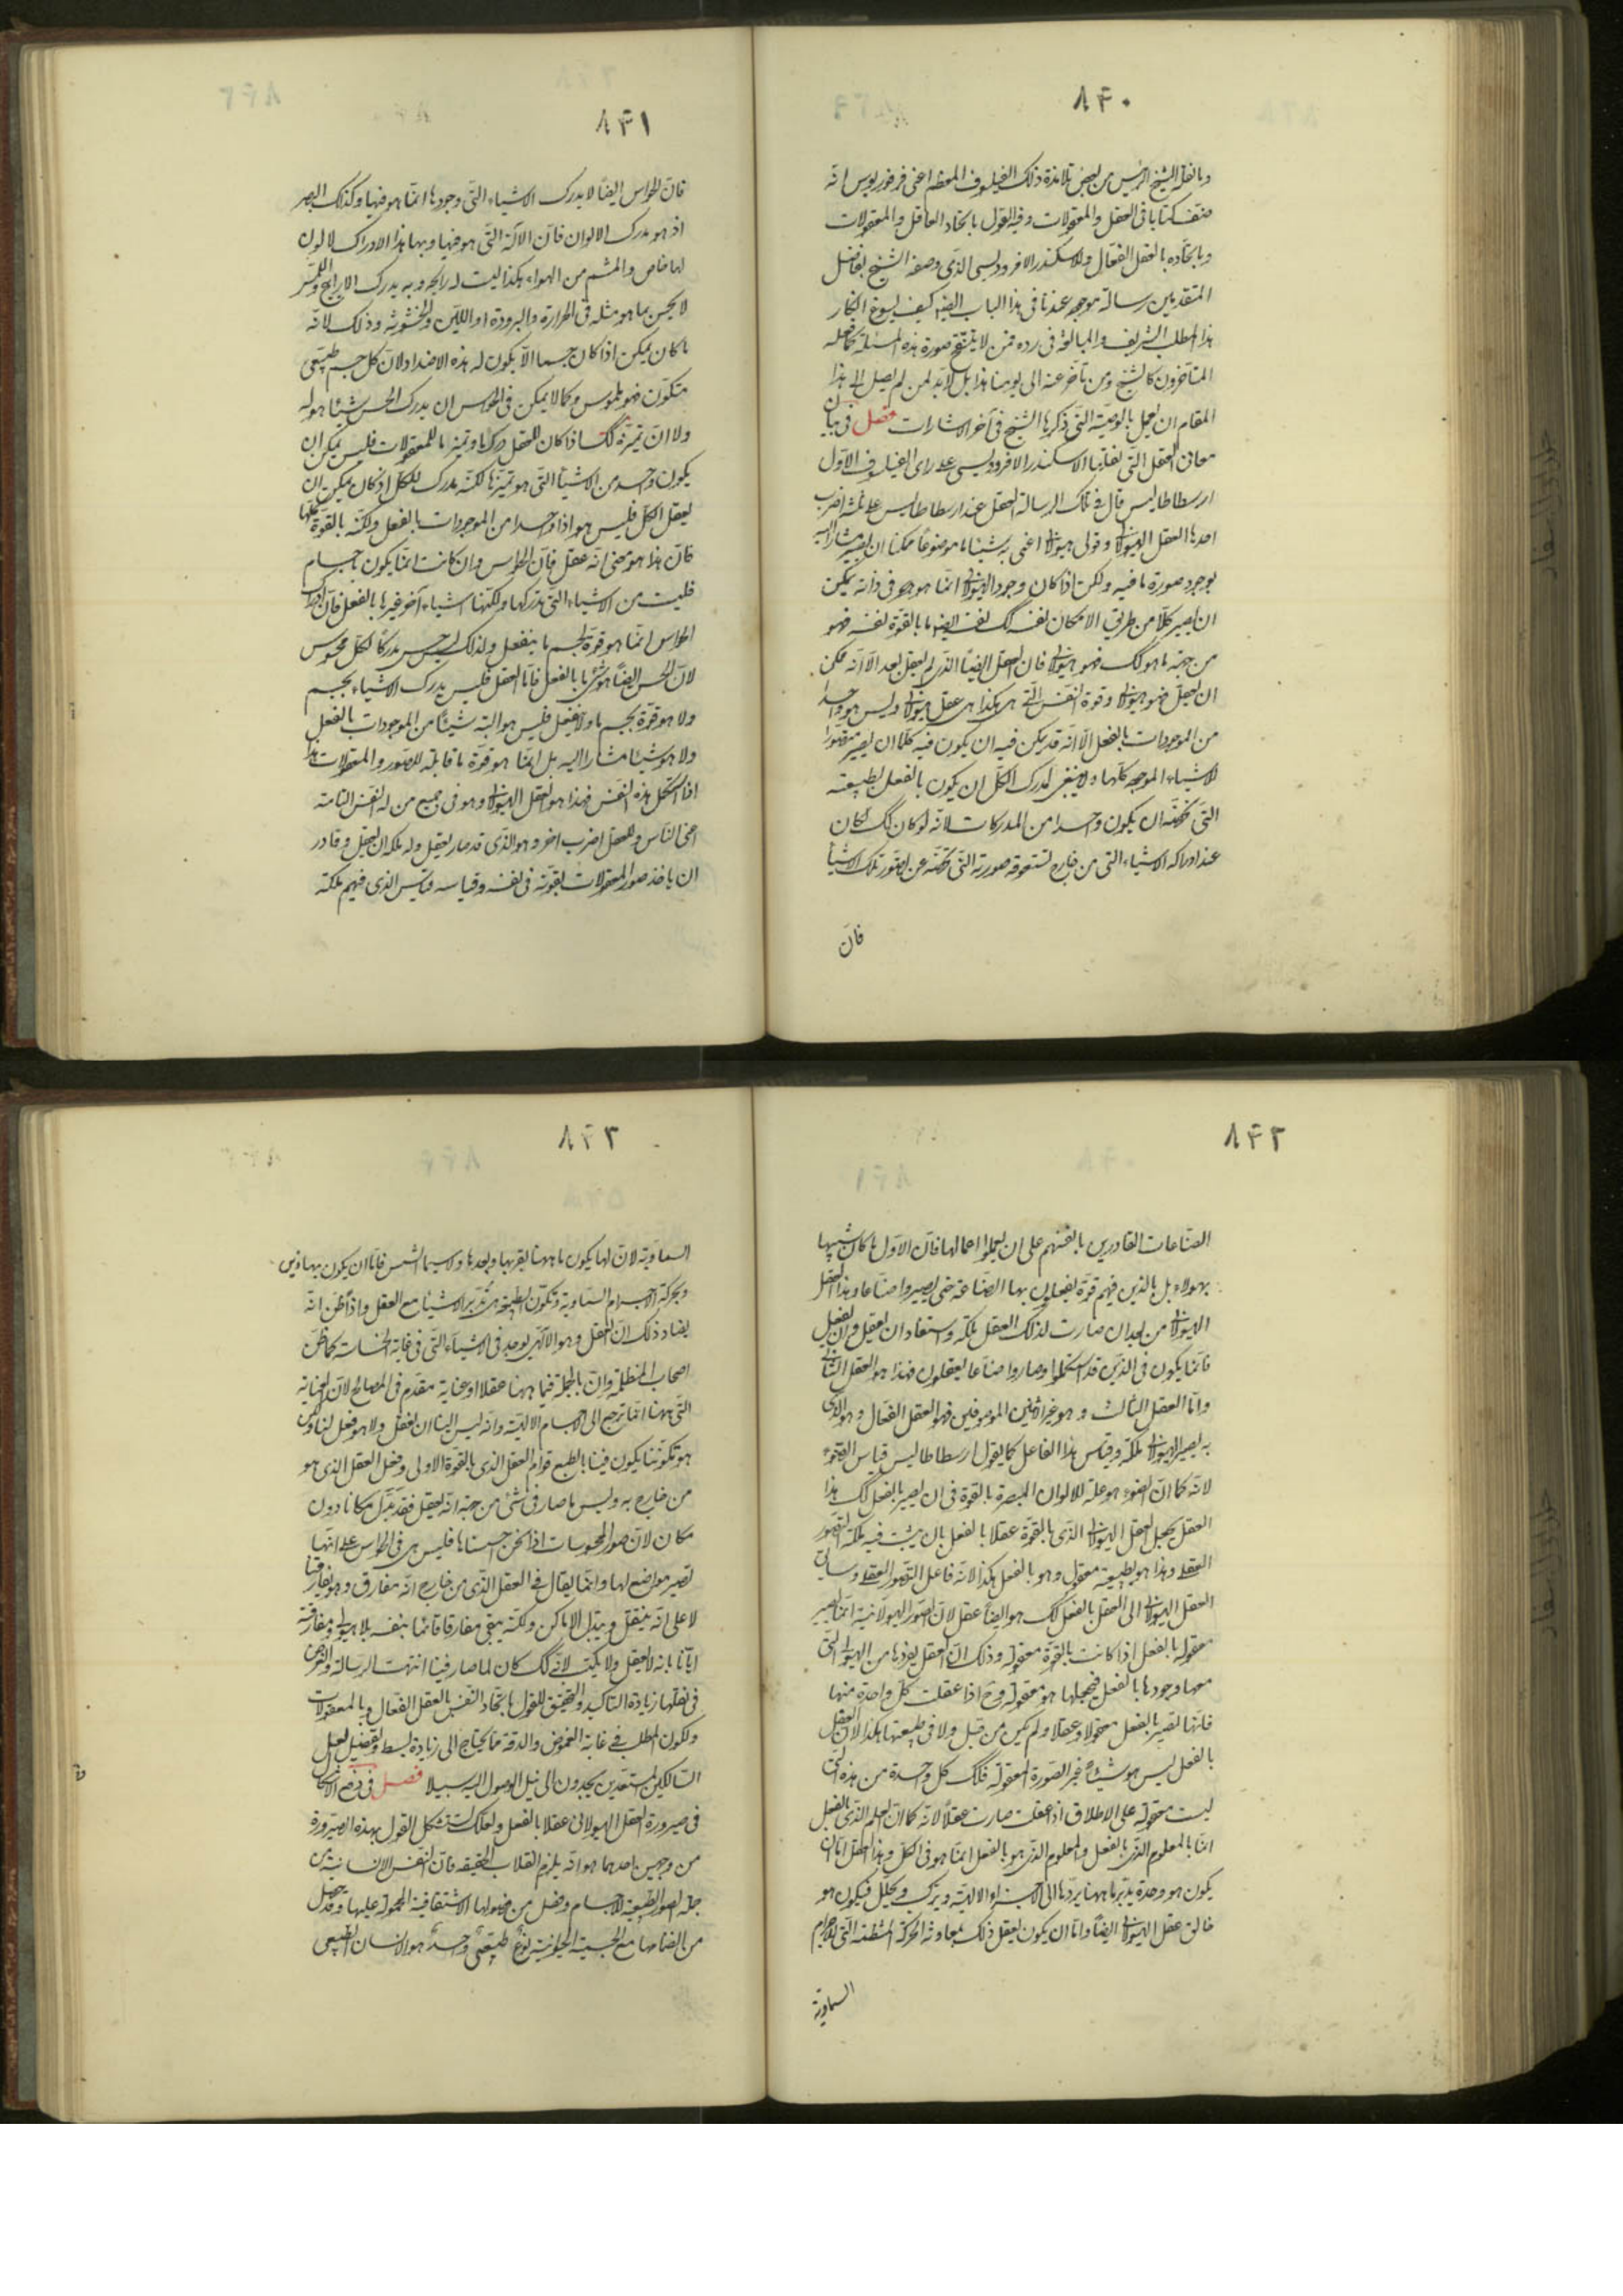 ٨٤٠
وبما نقله الشيخ الرئيس من بعض تلامذة ذلك الفيلسوف المعظم اعنى فرفوريوس انه
صنف كتابا فى العقل والمعقولات وفيه القول باتحاد العاقل والمعقولات
وباتحاده بالعقل الفعال وللاسكندر الافروديسى الذى وصفه الشيخ بفاضل
المتقدمين رسالة موجوده عندنا فى هذا الباب ايضا كيف يسوغ انكار
هذا المطلب الشريف والمبالغة فى رده ممن لا ينقح صورة هذه المسئلة كما فعله
المتأخرون كالشيخ ومن تأخر عنه الى يومنا هذا بل لابد لمن لم يصل الى هذا
المقام ان يعمل بالوصية التى ذكرها الشيخ فى آخر الاشارات فصل فى بيان
معانى العقل التى نقلها الاسكندر الافروديسى على راى الفيلسوف الاول
ارسطاطاليس قال فى تلك الرسالة العقل عند ارسطاطاليس على ثلثة اضرب
احدها العقل الهيولانى وقولى هيولانى اعنى به شيئا ما موضوعا ممكنا ان يصير مشارا اليه
بوجود صورة ما فيه ولكن اذا كان وجود الهيولى انما هو هو فى ذاته يمكن
ان يصير كلا من طريق الامكان نفسه كك ايضا ما بالقوة نفسه فهو
من جهة ما هو كك فهو هيولانى فان العقل ايضا الذى لم يعقل بعد الا انه ممكن
ان يعقل فهو هيولانى وقوة النفس التى هى هكذا هى عقل هيولانى وليس هو واحدا
من الموجودات بالفعل الا انه قد يمكن فيه ان يكون فيه كلها ان يصير متصورا
للاشياء الموجوده كلها ولا ينبغى لمدرك الكل ان يكون بالفعل بطبيعته
التى تخصه ان يكون واحدا من المدركات لانه لو كان كك لكان
عند ادراكه الاشياء التى من خارج تستعوقه صورته التى تخصه عن تصور تلك الاشياء
فان
٨٤١
فان الحواس ايضا لا يدرك الاشياء التى وجودها انما هو فيها وكذلك البصر
اذ هو مدرك الالوان فان الآلة التى هو فيها وبها هذا الادراك لا لون
لها خاص والمشم من الهواء هكذا ليست له رايحه وبه يدرك الاراييح واللمس
لا يحس بما هو مثله فى الحرارة والبرودة او اللين والخشونة وذلك لانه
ما كان يمكن اذا كان جسما الا يكون له هذه الاضداد لان كل جسم طبيعى
متكون فهو ملموس وكما لا يمكن فى الحواس ان يدرك الحس شيئا هو له
ولا ان تميزه كك اذا كان للعقل درك ما وتميز ما للمعقولات فليس يمكن ان
يكون واحدا من الاشياء التى هو تميزها لكنه مدرك للكل اذ كان يمكن ان
يعقل الكل فليس هو اذا واحدا من الموجودات بالفعل ولكنه بالقوة كلها
فان هذا هو معنى انه عقل فان الحواس وان كانت انما يكون باجسام
فليست من الاشياء التى تدركها ولكنها اشياء آخر غيرها بالفعل فان ادراك
الحواس انما هو قوة لجسم ما ينفعل ولذلك ليس حس مدركا لكل محسوس
لان الحس ايضا هو شئ ما بالفعل فاما العقل فليس يدرك الاشياء بجسم
ولا هو قوة لجسم ما ولا ينفعل فليس هو البتة شيئا من الموجودات بالفعل
ولا هو شيئا مشارا اليه بل انما هو قوة ما قابلة للصور والمعقولات هذا
اذا استكمل هذه النفس فهذا هو العقل الهيولانى وهو فى جميع من له النفس التامة
اعنى الناس وللعقل ضرب اخر وهو الذى قد صار يعقل وله ملكة ان يعقل وقادر
ان ياخذ صور المعقولات بقوته فى نفسه وقياسه قياس الذى فيهم ملكة
٨٤٢
الصناعات القادرين بانفسهم على ان يعملوا اعمالها فان الاول ما كان شبيها
بهؤلاء بل بالذين فيهم قوة يقبلون بها الصناعة حتى يصيروا صناعا وهذا العقل
الهيولانى من بعد ان صارت لذلك العقل ملكة واستفاد ان يعقل وان يفعل
فانما يكون فى الذين قد استكملوا وصاروا صناعا يعقلون فهذا هو العقل الثانى
واما العقل الثالث وهو غير الاثنين الموصوفين فهو العقل الفعال وهو الذى
به يصير الهيولانى ملكة وقياس هذا الفاعل كما يقول ارسطاطاليس قياس الضوء
لانه كما ان الضوء هو علة للالوان المبصرة بالقوة فى ان يصير بالفعل كك هذا
العقل يجعل العقل الهيولانى الذى بالقوة عقلا بالفعل بان يثبت فيه ملكة التصور
العقلى وهذا هو بطبيعته معقول وهو بالفعل هكذا لانه فاعل التصور العقلى وسائق
العقل الهيولانى الى العقل بالفعل كك هو ايضا عقل لان الصور الهيولانية انما يصير
معقولة بالفعل اذا كانت بالقوة معقولة وذلك ان العقل يفردها من الهيولى التى
معها وجودها بالفعل فيجعلها هو معقولة وح اذا عقلت كل واحدة منها
فانها تصير بالفعل معقولا وعقلا ولم يكن من قبل ولا فى طبيعتها هكذا لان العقل
بالفعل ليس هو شيئا غير الصورة المعقولة فكك كل واحدة من هذه التى
ليست معقولة على الاطلاق اذا عقلت صارت عقلا لانه كما ان العلم الذى بالفعل
انما بالمعلوم الذى بالفعل والمعلوم الذى هو بالفعل انما هو فى الكل وهذا العقل اما ان
يكون هو وحده يدبر ما ههنا يردها الى الاجسام الالهية ويركب ويحلل فيكون هو
خالق عقل الهيولانى ايضا واما ان يكون يعقل ذلك بمعاونة الحركة المنتظمة التى للاجرام
السماوية
٨٤٣
السماوية لان لها يكون ما ههنا بقربها وبعدها ولا سيما الشمس فاما ان يكون بهاذين
وبحركة الاجرام السماوية وتكون الطبيعة هى تدبر الاشياء مع العقل واذا ظن انه
يضاد ذلك ان العقل وهو الالهى يوجد فى الاشياء التى فى غاية الخساسة كما ظن
اصحاب المظلة وان بالجملة فيما ههنا عقلا او عناية متقدم فى المصالح لان العناية
التى ههنا انما ترجع الى الاجسام الالهية وانه ليس الينا ان نعقل ولا هو فعل لنا ولكن
هو تكوننا يكون فينا بالطبع قوام العقل الذى بالقوة الاولى وفعل العقل الذى هو
من خارج به وليس ما صار فى شئ من جهة انه يعقل فقد تبدل مكانا دون
مكان لان صور المحسوسات اذا نحن احسسناها فليس هى فى الحواس على انها
تصير مواضع لها وانما يقال فى العقل الذى من خارج انه مفارق وهو يفارقنا
لا على انه ينتقل ويبتدل الاماكن ولكنه يبقى مفارقا قائما بنفسه بلا هيولى ومفارقته
ايانا بانه لا يعقل ولا يكتب لانه كك كان لما صار فينا انتهت الرسالة والغرض
فى نقلها زيادة التاكيد والتحقيق للقول باتحاد النفس بالعقل الفعال وبالمعقولات
ولكون المطلب فى غاية الغموض والدقة مما يحتاج الى زيادة بسط وتفصيل لعل
السالكين المستعدين يجدون الى نيل الوصول اليه سبيلا فصل فى دفع الاشكال
فى صيرورة العقل الهيولانى عقلا بالفعل ولعلك تستشكل القول بهذه الصيرورة
من وجهين احدهما هو انه يلزم انقلاب الحقيقة فان النفس الانسانية من
جملة الصور الطبيعية للاجسام وفصل من فصولها الاشتقاقية المحمولة عليها وقد حصل
من انضمامها مع الجسمية الحيوانية نوع طبيعى واحد هو الانسان الطبيعى